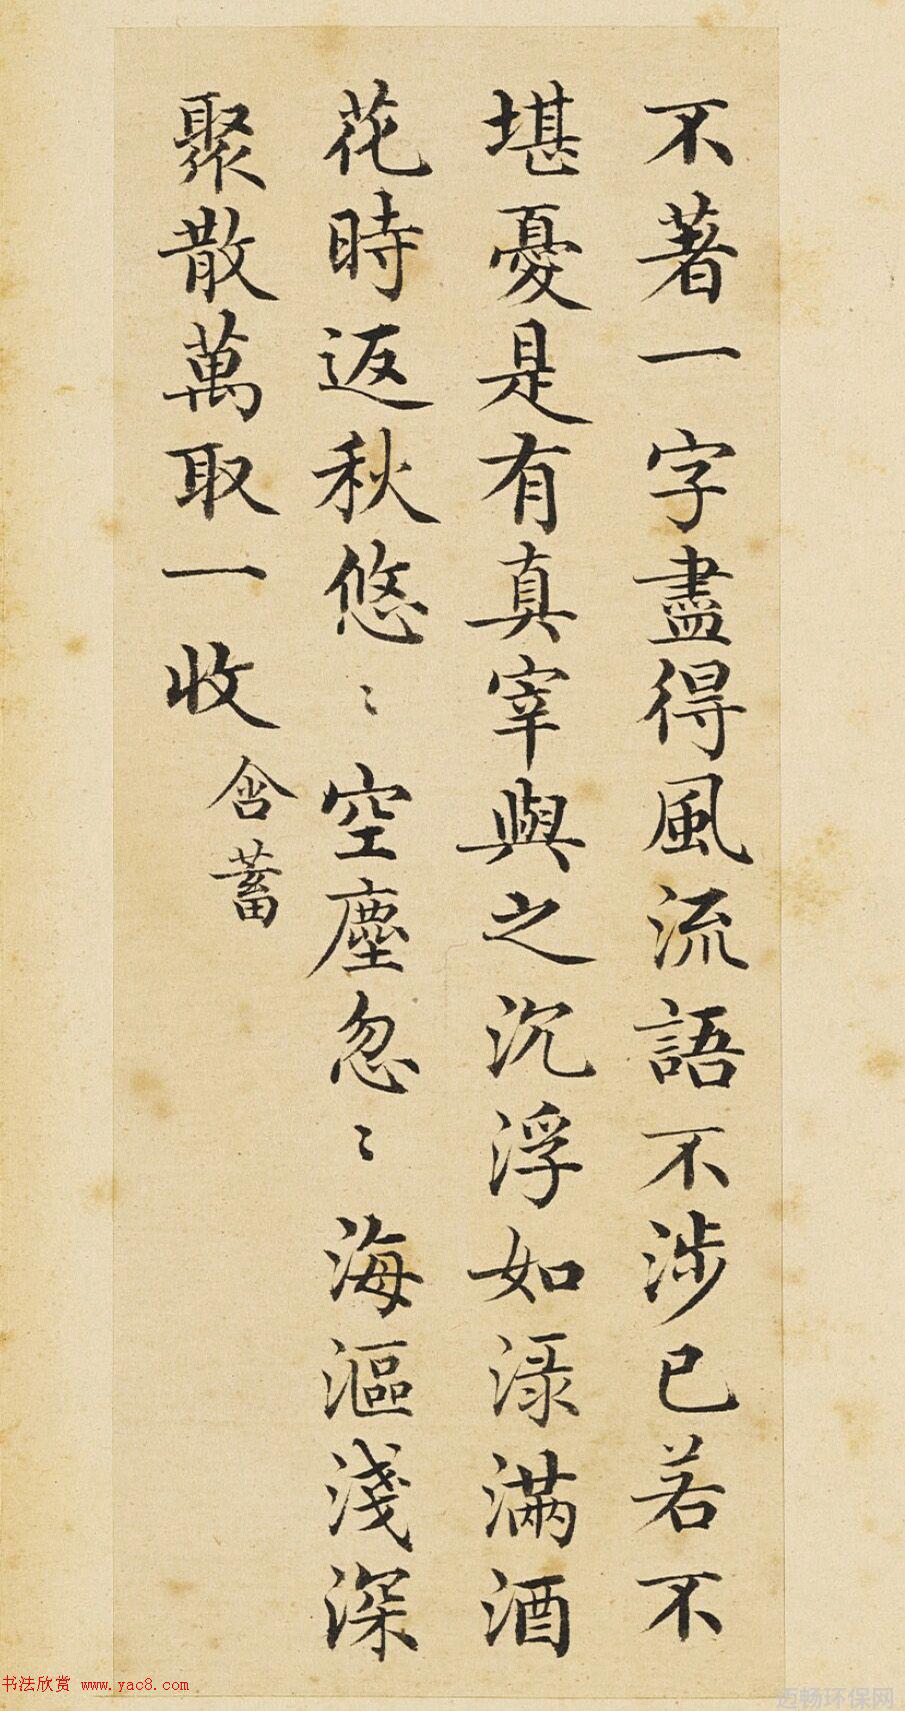 不著一字盡得風流語不涉已若不
堪憂是有真宰與之沉浮如渌滿酒
花時返秋悠〻空塵忽〻海漚淺深
聚散萬取一收含蓄
书法欣赏 www.yac8.com
迈畅环保网